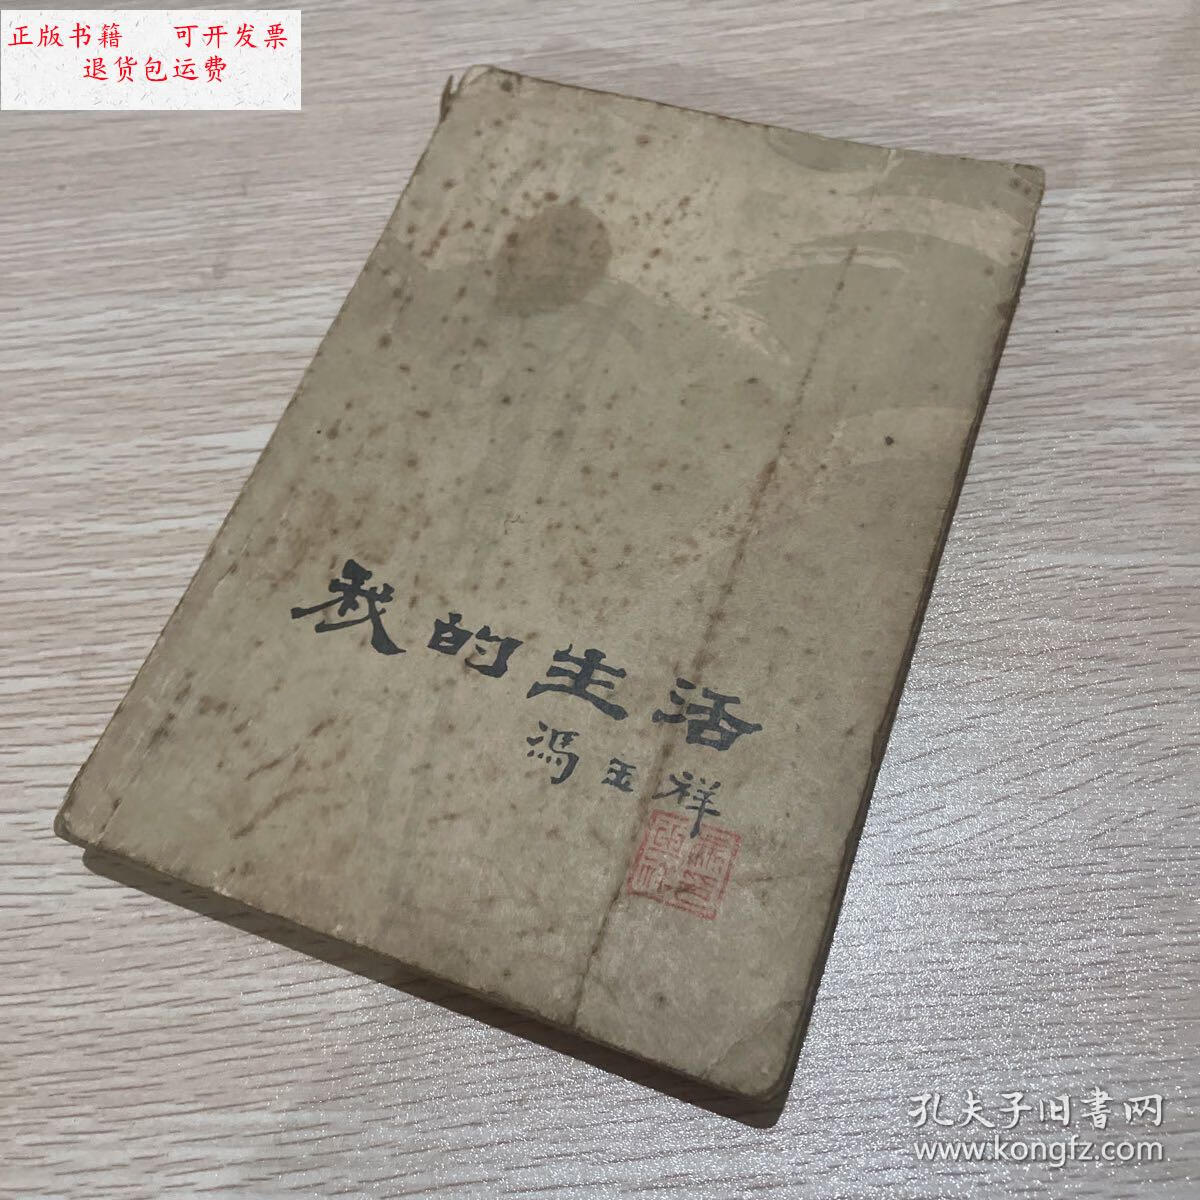 正版书籍 可开发票
退货包运费
我的生活
冯玉祥
孔夫子旧書网
www.kongfz.com